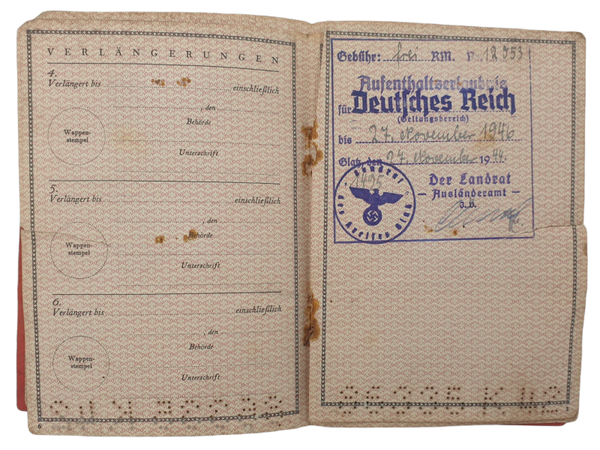 VERLÄNGERUNGEN
4.
Verlängert bis einschließlich
, den
Behörde
Wappen-
stempel
Unterschrift
5.
Verlängert bis einschließlich
, den
Behörde
Wappen-
stempel
Unterschrift
6.
Verlängert bis einschließlich
, den
Behörde
Wappen-
stempel
Unterschrift
6
Gebühr: frei RM.
Aufenthaltserlaubnis
für Deutsches Reich
(Geltungsbereich)
bis 27. November 1946
Glatz, den 27. November 1944.
Der Landrat
— Ausländeramt —
Landrat
des Kreises Glatz